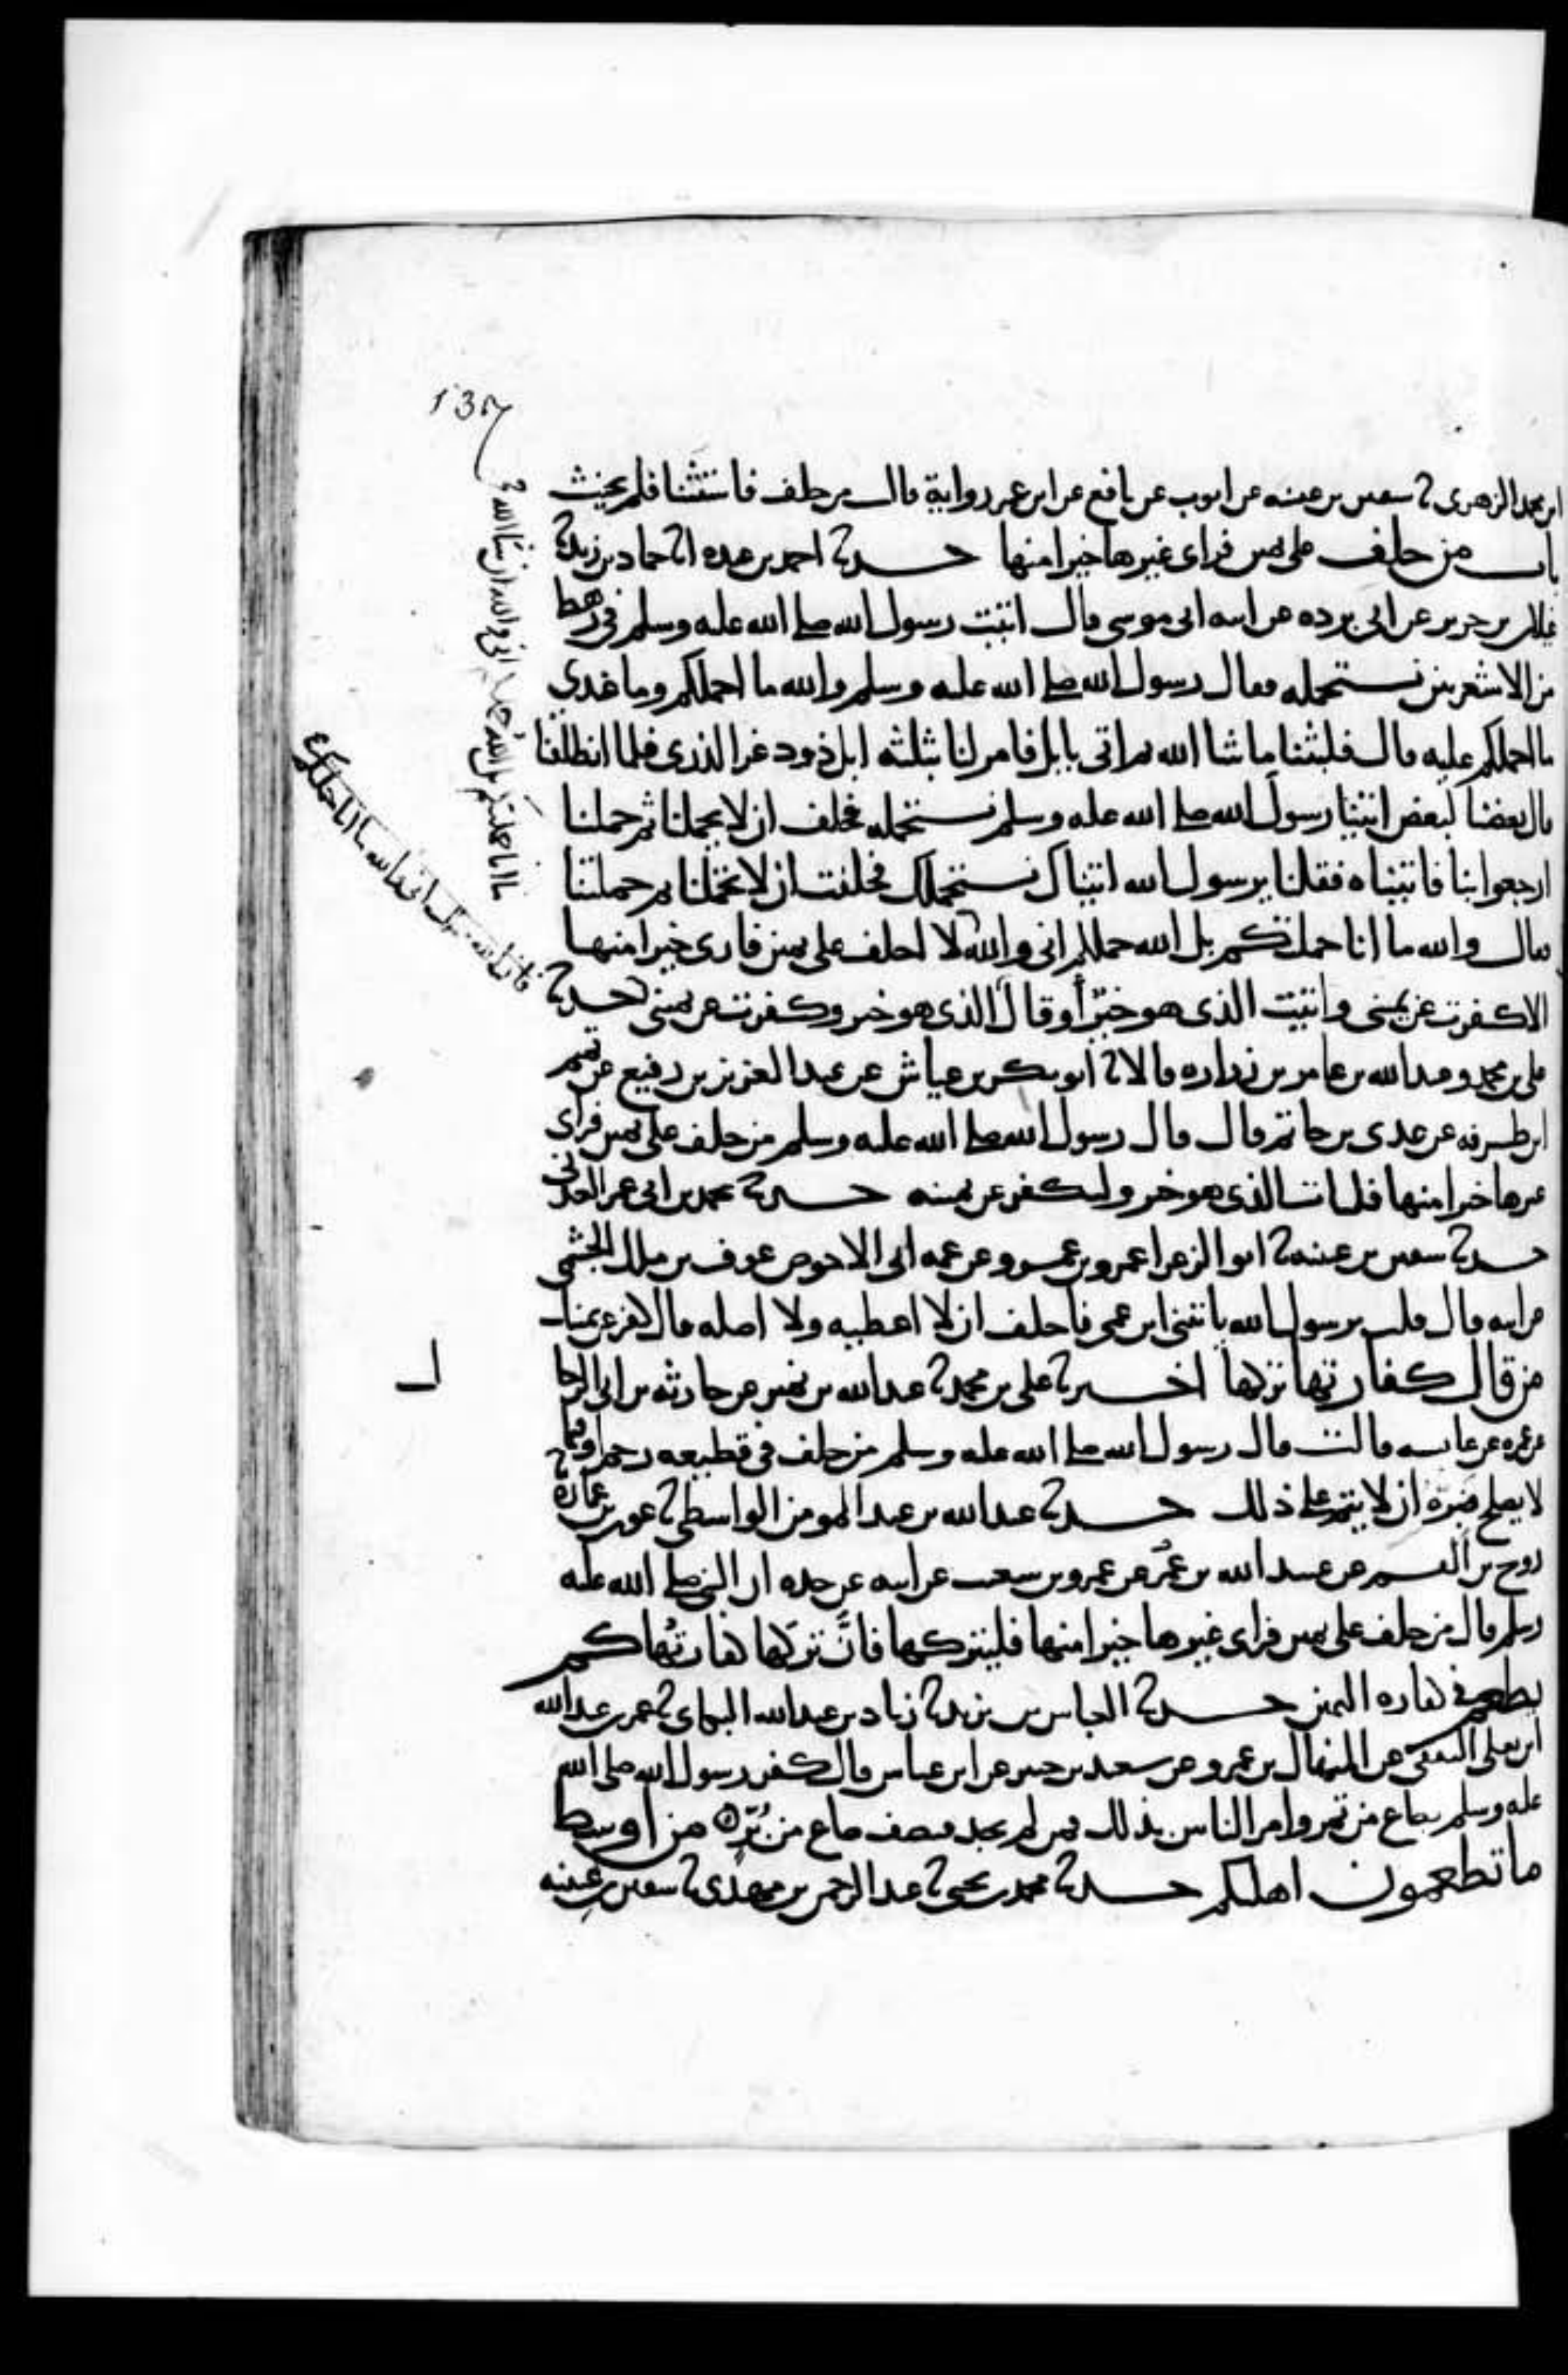 137
ابن محمد الزهري ثنا سفيان بن عيينه عن ايوب عن نافع عن ابن عمر رواية قال من حلف فاستثنا فلم يحنث
باب من حلف على يمين فراى غيرها خيرا منها حدثنا احمد بن عبده انا حماد بن زيد ثنا
غيلان بن جرير عن ابي برده عن ابيه ابي موسى قال اتيت رسول الله صلى الله عليه وسلم في رهط
من الاشعريين نستحمله فقال رسول الله صلى الله عليه وسلم والله ما احملكم وما عندي
ما احملكم عليه قال فلبثنا ما شا الله ثم اتي بابل فامر لنا بثلثه ابل ذود غر الذرى فلما انطلقنا
قال بعضنا لبعض اتينا رسول الله صلى الله عليه وسلم نستحمله فحلف ان لا يحملنا ثم حملنا
ارجعوا بنا فاتيناه فقلنا يرسول الله اتيناك نستحملك فحلفت ان لا تحملنا ثم حملتنا
فقال والله ما انا حملتكم بل الله حملكم اني والله لا احلف على يمين فارى خيرا منها
الا كفرت عن يميني واتيت الذي هو خير او قال الذي هو خير وكفرت عن يميني حدثنا
علي بن محمد وعبد الله بن عامر بن زراره قالا ثنا ابو بكر بن عياش عن عبد العزيز بن رفيع عن تميم
ابن طرفه عن عدي بن حاتم قال قال رسول الله صلى الله عليه وسلم من حلف على يمين فراى
غيرها خيرا منها فليات الذي هو خير وليكفر عن يمينه حدثنا محمد بن ابي عمر العدني
حدثنا سفيان بن عيينه ثنا ابو الزعرا عمرو بن عمرو عن عمه ابي الاحوص عوف بن ملك الجشمي
عن ابيه قال قلت يرسول الله ياتيني ابن عمي فاحلف ان لا اعطيه ولا اصله قال كفر عن يمينك
من قال كفارتها تركها اخبرنا علي بن محمد ثنا عبد الله بن نمير عن حارثه بن ابي الرجا
عن عمره عن عايشه قالت قال رسول الله صلى الله عليه وسلم من حلف في قطيعه رحم او فيما
لا يصلح فبره ان لا يتم على ذلك حدثنا عبد الله بن عبد المومن الواسطي ثنا عون بن عماره ثنا
روح بن القسم عن عبيد الله بن عمر عن عمرو بن شعيب عن ابيه عن جده ان النبي صلى الله عليه
وسلم قال من حلف على يمين فراى غيرها خيرا منها فليتركها فان تركها كفارتها كم
يطعم في كفاره اليمين حدثنا العباس بن يزيد ثنا زياد بن عبد الله البكاي ثنا عمر بن عبد الله
ابن يعلى الثقفي عن المنهال بن عمرو عن سعيد بن جبير عن ابن عباس قال كفر رسول الله صلى الله
عليه وسلم بصاع من تمر وامر الناس بذلك فمن لم يجد فنصف صاع من بر من اوسط
ما تطعمون اهليكم حدثنا محمد بن يحيى ثنا عبد الرحمن بن مهدي ثنا سفين بن عيينه
ما انا حملتكم بل الله حملكم اني والله ان شا الله